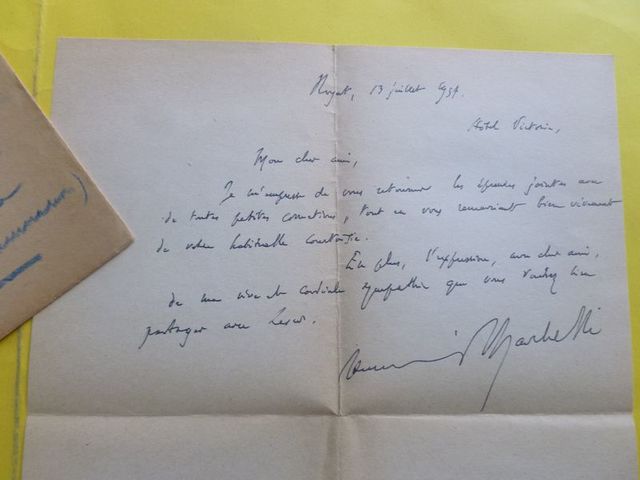 Royat, 13 juillet 1957.
Hôtel Victoria,
Mon cher ami,
Je m'empresse de vous retourner les épreuves jointes avec
de toutes petites corrections, tout en vous remerciant bien vivement
de votre habituelle courtoisie.
En plus, l'expression, mon cher ami,
de ma vive et cordiale sympathie que vous voudrez bien
partager avec